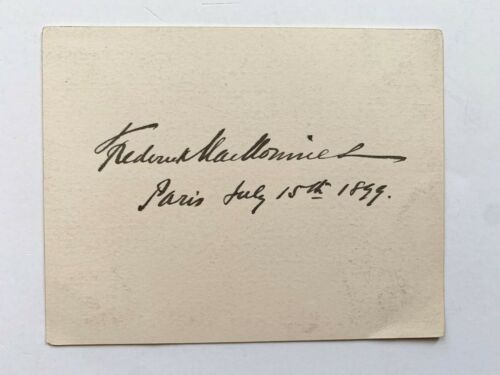 Frederick MacMonnies
Paris July 15th 1899.